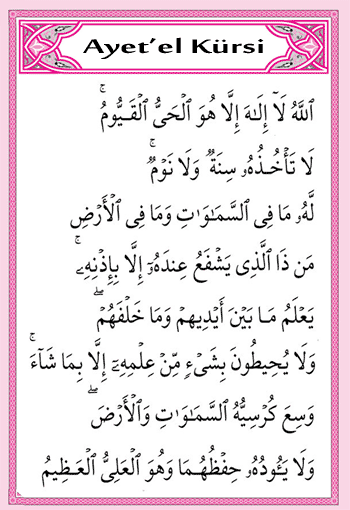 Ayet'el Kürsi
اَللّٰهُ لَآ إِلَـٰهَ إِلَّا هُوَ الْحَىُّ الْقَيُّومُ ۚ
لَا تَأْخُذُهُۥ سِنَةٌ وَلَا نَوْمٌ ۚ
لَّهُۥ مَا فِى السَّمَـٰوَٰتِ وَمَا فِى الْأَرْضِ
مَن ذَا الَّذِى يَشْفَعُ عِندَهُۥٓ إِلَّا بِإِذْنِهِۦ ۚ
يَعْلَمُ مَا بَيْنَ أَيْدِيهِمْ وَمَا خَلْفَهُمْ ۖ
وَلَا يُحِيطُونَ بِشَىْءٍ مِّنْ عِلْمِهِۦٓ إِلَّا بِمَا شَآءَ ۚ
وَسِعَ كُرْسِيُّهُ السَّمَـٰوَٰتِ وَالْأَرْضَ ۖ
وَلَا يَـُٔودُهُۥ حِفْظُهُمَا وَهُوَ الْعَلِىُّ الْعَظِيمُ